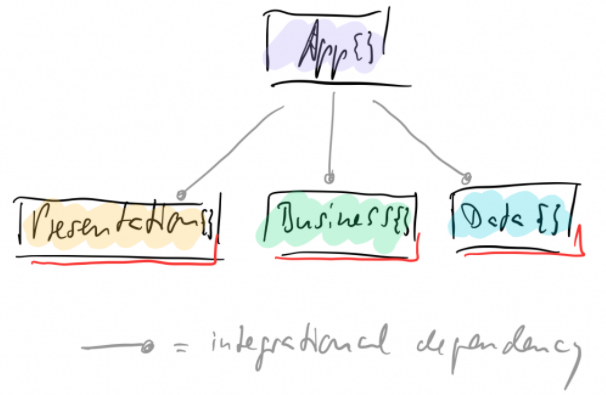 App{}
Presentation{}
Business{}
Data{}
= integrational dependency